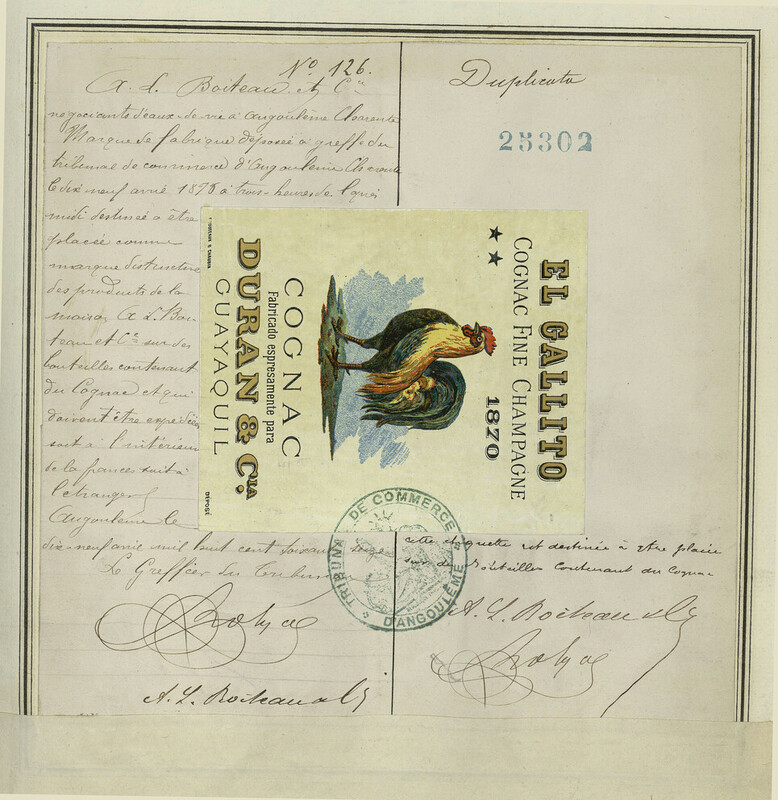 No 126.
A. L. Boiteau et Cie
négociants d'eaux-de-vie à Angoulême Charente
Marque de fabrique déposée à greffe du
tribunal de commerce d'Angoulême Charente
le dix-neuf avril 1876 à trois heures de l'après
midi destinée à être
placée comme
marque distinctive
des produits de la
maison A L. Boi
teau et Cie sur des
bouteilles contenant
du Cognac et qui
doivent être expédiées
soit à l'intérieur
de la france soit à
l'étranger
Angoulême le
dix-neuf avril mil huit cent soixante seize
Le Greffier du Tribunal
A. L. Boiteau & Cie
Duplicata
25302
EL GALLITO
COGNAC FINE CHAMPAGNE
1870
COGNAC
Fabricado espresamente para
DURAN & CIA
GUAYAQUIL
DÉPOSÉ
TRIBUNAL DE COMMERCE
D'ANGOULÊME
cette étiquette est destinée à être placée
sur des bouteilles contenant du Cognac
A. L. Boiteau & Cie